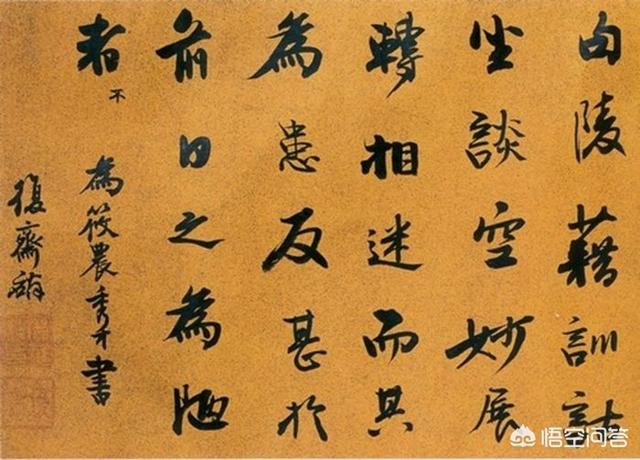 句陵藉訓詁
坐談空妙展
轉相迷而其
為患反甚於
前日之為陋
者
不
為筱農秀才書
復齋
悟空问答